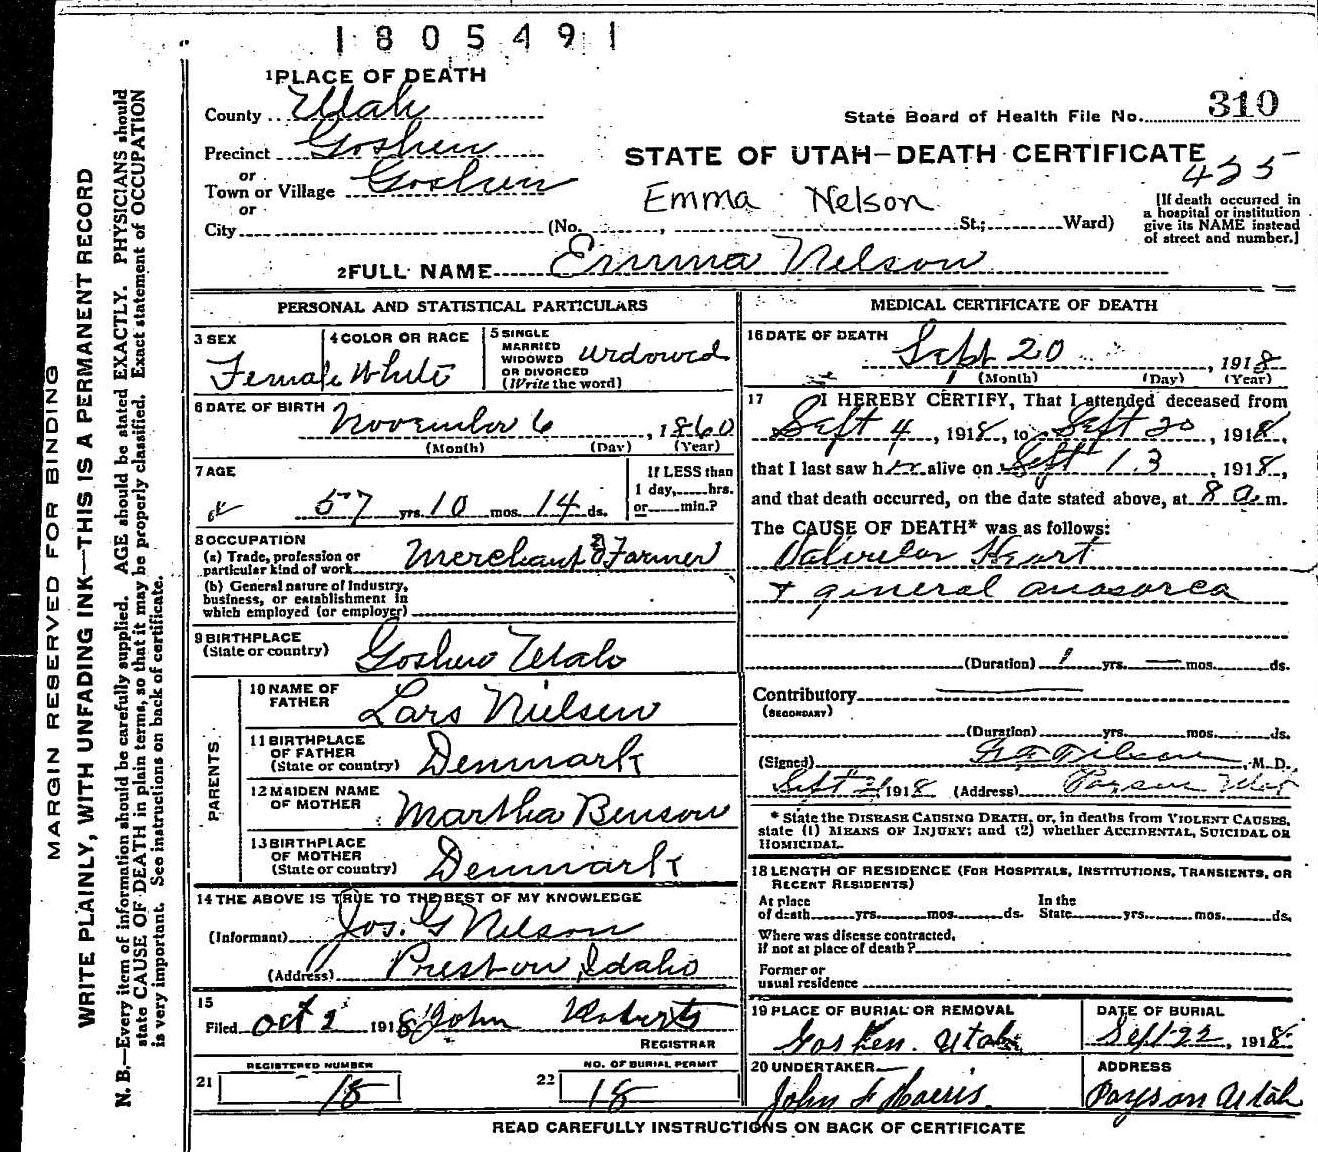 1805491
1 PLACE OF DEATH
County Utah
State Board of Health File No. 310
Precinct Goshen
STATE OF UTAH—DEATH CERTIFICATE
or
Town or Village Goshen
425
or
Emma Nelson
City (No. , St.; Ward)
[If death occurred in
a hospital or institution
give its NAME instead
of street and number.]
2 FULL NAME Emma Nelson
PERSONAL AND STATISTICAL PARTICULARS
3 SEX
Female
4 COLOR OR RACE
White
5 SINGLE
MARRIED
WIDOWED
OR DIVORCED
(Write the word)
Widowed
6 DATE OF BIRTH November 6, 1860
(Month) (Day) (Year)
7 AGE
57 yrs. 10 mos. 14 ds.
If LESS than
1 day, hrs.
or min.?
8 OCCUPATION
(a) Trade, profession or
particular kind of work Merchant & Farmer
(b) General nature of Industry,
business, or establishment in
which employed (or employer)
9 BIRTHPLACE
(State or country) Goshen Utah
PARENTS
10 NAME OF
FATHER Lars Nielsen
11 BIRTHPLACE
OF FATHER
(State or country) Denmark
12 MAIDEN NAME
OF MOTHER Martha Benson
13 BIRTHPLACE
OF MOTHER
(State or country) Denmark
14 THE ABOVE IS TRUE TO THE BEST OF MY KNOWLEDGE
(Informant) Jos. G Nelson
(Address) Preston, Idaho
15
Filed Oct 2 1918 John Roberts
REGISTRAR
REGISTERED NUMBER
21 18
NO. OF BURIAL PERMIT
22 18
MEDICAL CERTIFICATE OF DEATH
16 DATE OF DEATH Sept 20, 1918
(Month) (Day) (Year)
17 I HEREBY CERTIFY, That I attended deceased from
Sept 4, 1918, to Sept 20, 1918,
that I last saw her alive on Sept 13, 1918,
and that death occurred, on the date stated above, at 8 a. m.
The CAUSE OF DEATH* was as follows:
Valvular Heart
+ general anasarca
(Duration) 1 yrs. — mos. ds.
Contributory
(SECONDARY)
(Duration) yrs. mos. ds.
(Signed) , M. D.
Sept 21 1918 (Address) Payson Utah
* State the DISEASE CAUSING DEATH, or, in deaths from VIOLENT CAUSES,
state (1) MEANS OF INJURY; and (2) whether ACCIDENTAL, SUICIDAL OR
HOMICIDAL.
18 LENGTH OF RESIDENCE (FOR HOSPITALS, INSTITUTIONS, TRANSIENTS, OR
RECENT RESIDENTS)
At place
of death yrs. mos. ds.
In the
State yrs. mos. ds.
Where was disease contracted,
if not at place of death?
Former or
usual residence
19 PLACE OF BURIAL OR REMOVAL
Goshen. Utah
DATE OF BURIAL
Sept 22, 1918
20 UNDERTAKER
John F Harris.
ADDRESS
Payson Utah
READ CAREFULLY INSTRUCTIONS ON BACK OF CERTIFICATE
MARGIN RESERVED FOR BINDING
WRITE PLAINLY, WITH UNFADING INK—THIS IS A PERMANENT RECORD
N. B.—Every item of information should be carefully supplied. AGE should be stated EXACTLY. PHYSICIANS should
state CAUSE OF DEATH in plain terms, so that it may be properly classified. Exact statement of OCCUPATION
is very important. See instructions on back of certificate.